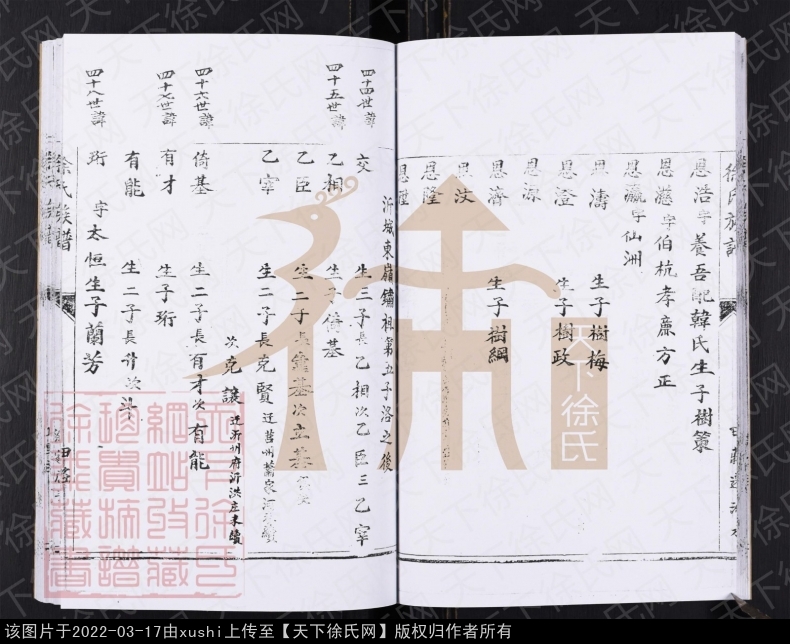 恩浩字養吾配韓氏生子樹策
恩遯字伯杭孝廉方正
恩瀛字仙洲
恩濤 生子樹梅
恩澄 生子樹政
恩源
恩濟 生子樹綱
恩汶
恩隆
恩陞
沂城東嶺鎮祖第五子洛之後
四十四世諱 交 生三子長乙相次乙臣三乙宰
四十五世諱 乙相 生子倚基
乙臣 生二子長 基次立基
乙宰 生二子長克賢遷莒州蘭家
次克讓遷沂州府沂洪庄未續
四十六世諱 倚基 生二子長有才次有能
四十七世諱 有才 生子珩
有能 生二子長 次
四十八世諱 珩 字太恒生子蘭芳
徐氏族譜
天下徐氏
天下徐氏网
该图片于2022-03-17由xushi上传至【天下徐氏网】版权归作者所有